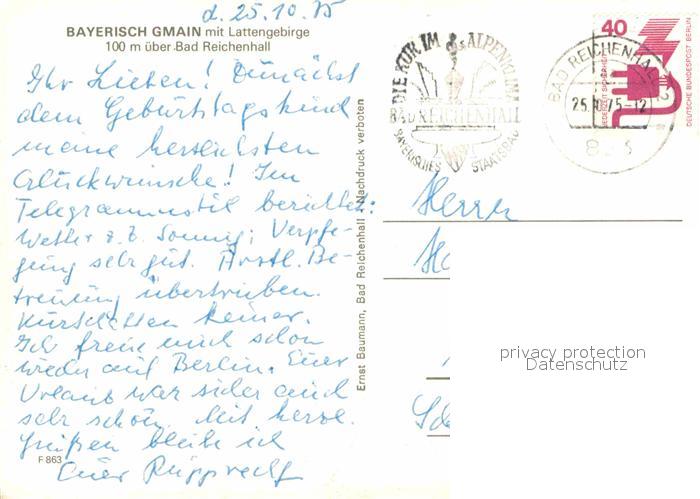 d. 25.10.75
BAYERISCH GMAIN mit Lattengebirge
100 m über Bad Reichenhall
Ihr Lieben! Zunächst
dem Geburtstagskind
meine herzlichsten
Glückwünsche! Im
Telegrammstil berichtet:
Wetter z. Z. Sonnig; Verpfle-
gung sehr gut. Ärztl. Be-
treuung übertrieben.
Kurschatten keiner.
Ich freue mich schon
wieder auf Berlin. Euer
Urlaub war sicher auch
sehr schön. Mit herzl.
Grüßen bleibe ich
Euer Rupprecht
F 863
Ernst Baumann, Bad Reichenhall - Nachdruck verboten
DIE KUR IM ALPENKLIMA
BAD REICHENHALL
BAYERISCHES STAATSBAD
BAD REICHENHALL
25.10.75-12
40
JEDERZEIT SICHERHEIT
DEUTSCHE BUNDESPOST BERLIN
Herrn
privacy protection
Datenschutz